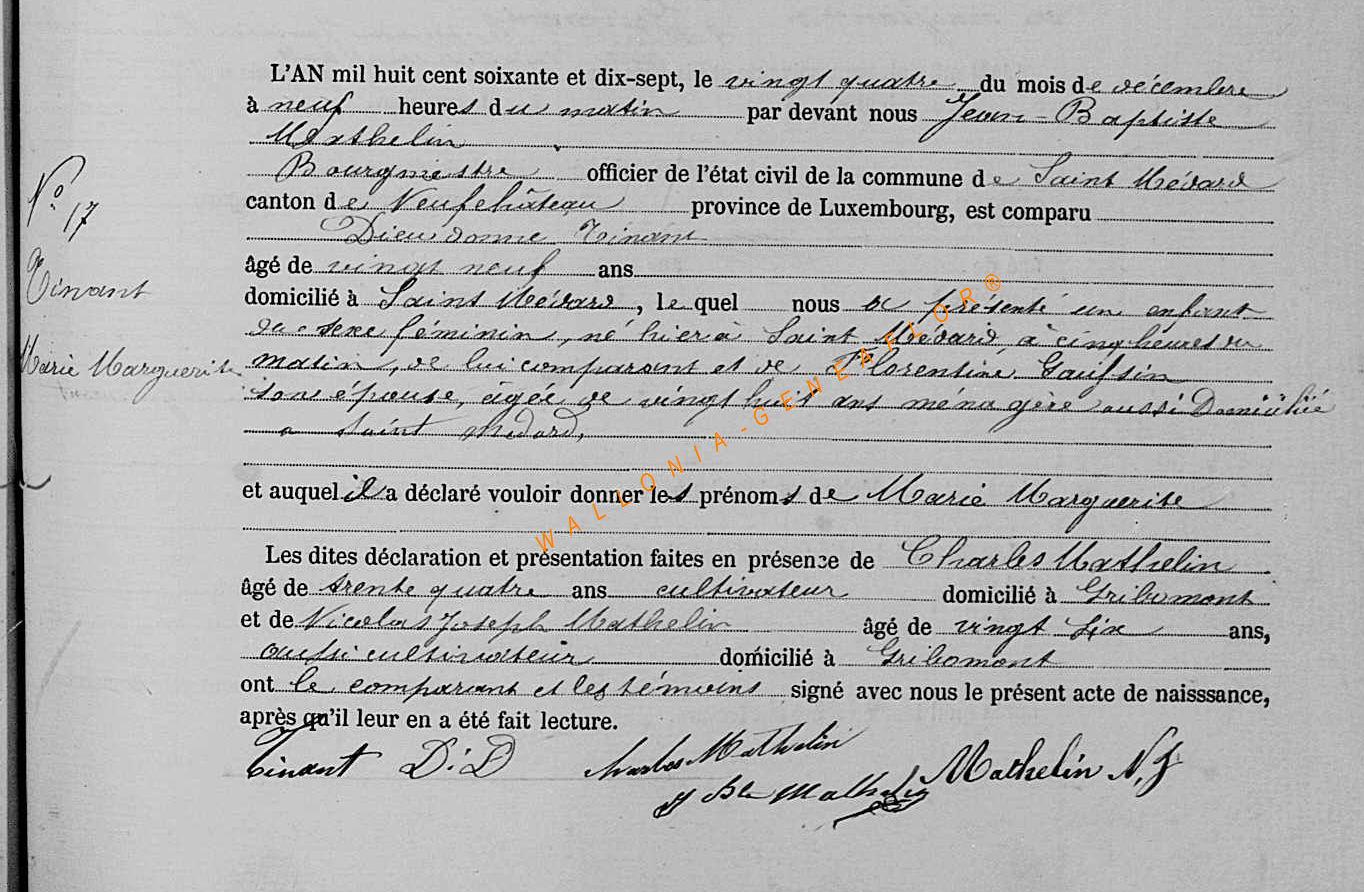 L'AN mil huit cent soixante et dix-sept, le vingt quatre du mois de décembre
à neuf heures du matin par devant nous Jean-Baptiste
Mathelin
Bourgmestre officier de l'état civil de la commune de Saint Médard
canton de Neufchâteau province de Luxembourg, est comparu
Dieudonné Tinant
âgé de vingt neuf ans
domicilié à Saint Médard, lequel nous a présenté un enfant
du sexe féminin, né hier à Saint Médard, à cinq heures du
matin, de lui comparant et de Florentine Gaussin
son épouse, âgée de vingt huit ans ménagère aussi Domiciliée
a Saint Médard,
et auquel il a déclaré vouloir donner les prénoms de Marie Marguerite
Les dites déclaration et présentation faites en présence de Charles Mathelin
âgé de trente quatre ans cultivateur domicilié à Gribomont
et de Nicolas Joseph Mathelin âgé de vingt six ans,
aussi cultivateur domicilié à Gribomont
ont le comparant et les témoins signé avec nous le présent acte de naisssance,
après qu'il leur en a été fait lecture.
Tinant D.D Charles Mathelin
J Bte Mathelin Mathelin N.J
No. 17
Tinant
Marie Marguerite
WALLONIA-GENEAFLOR®